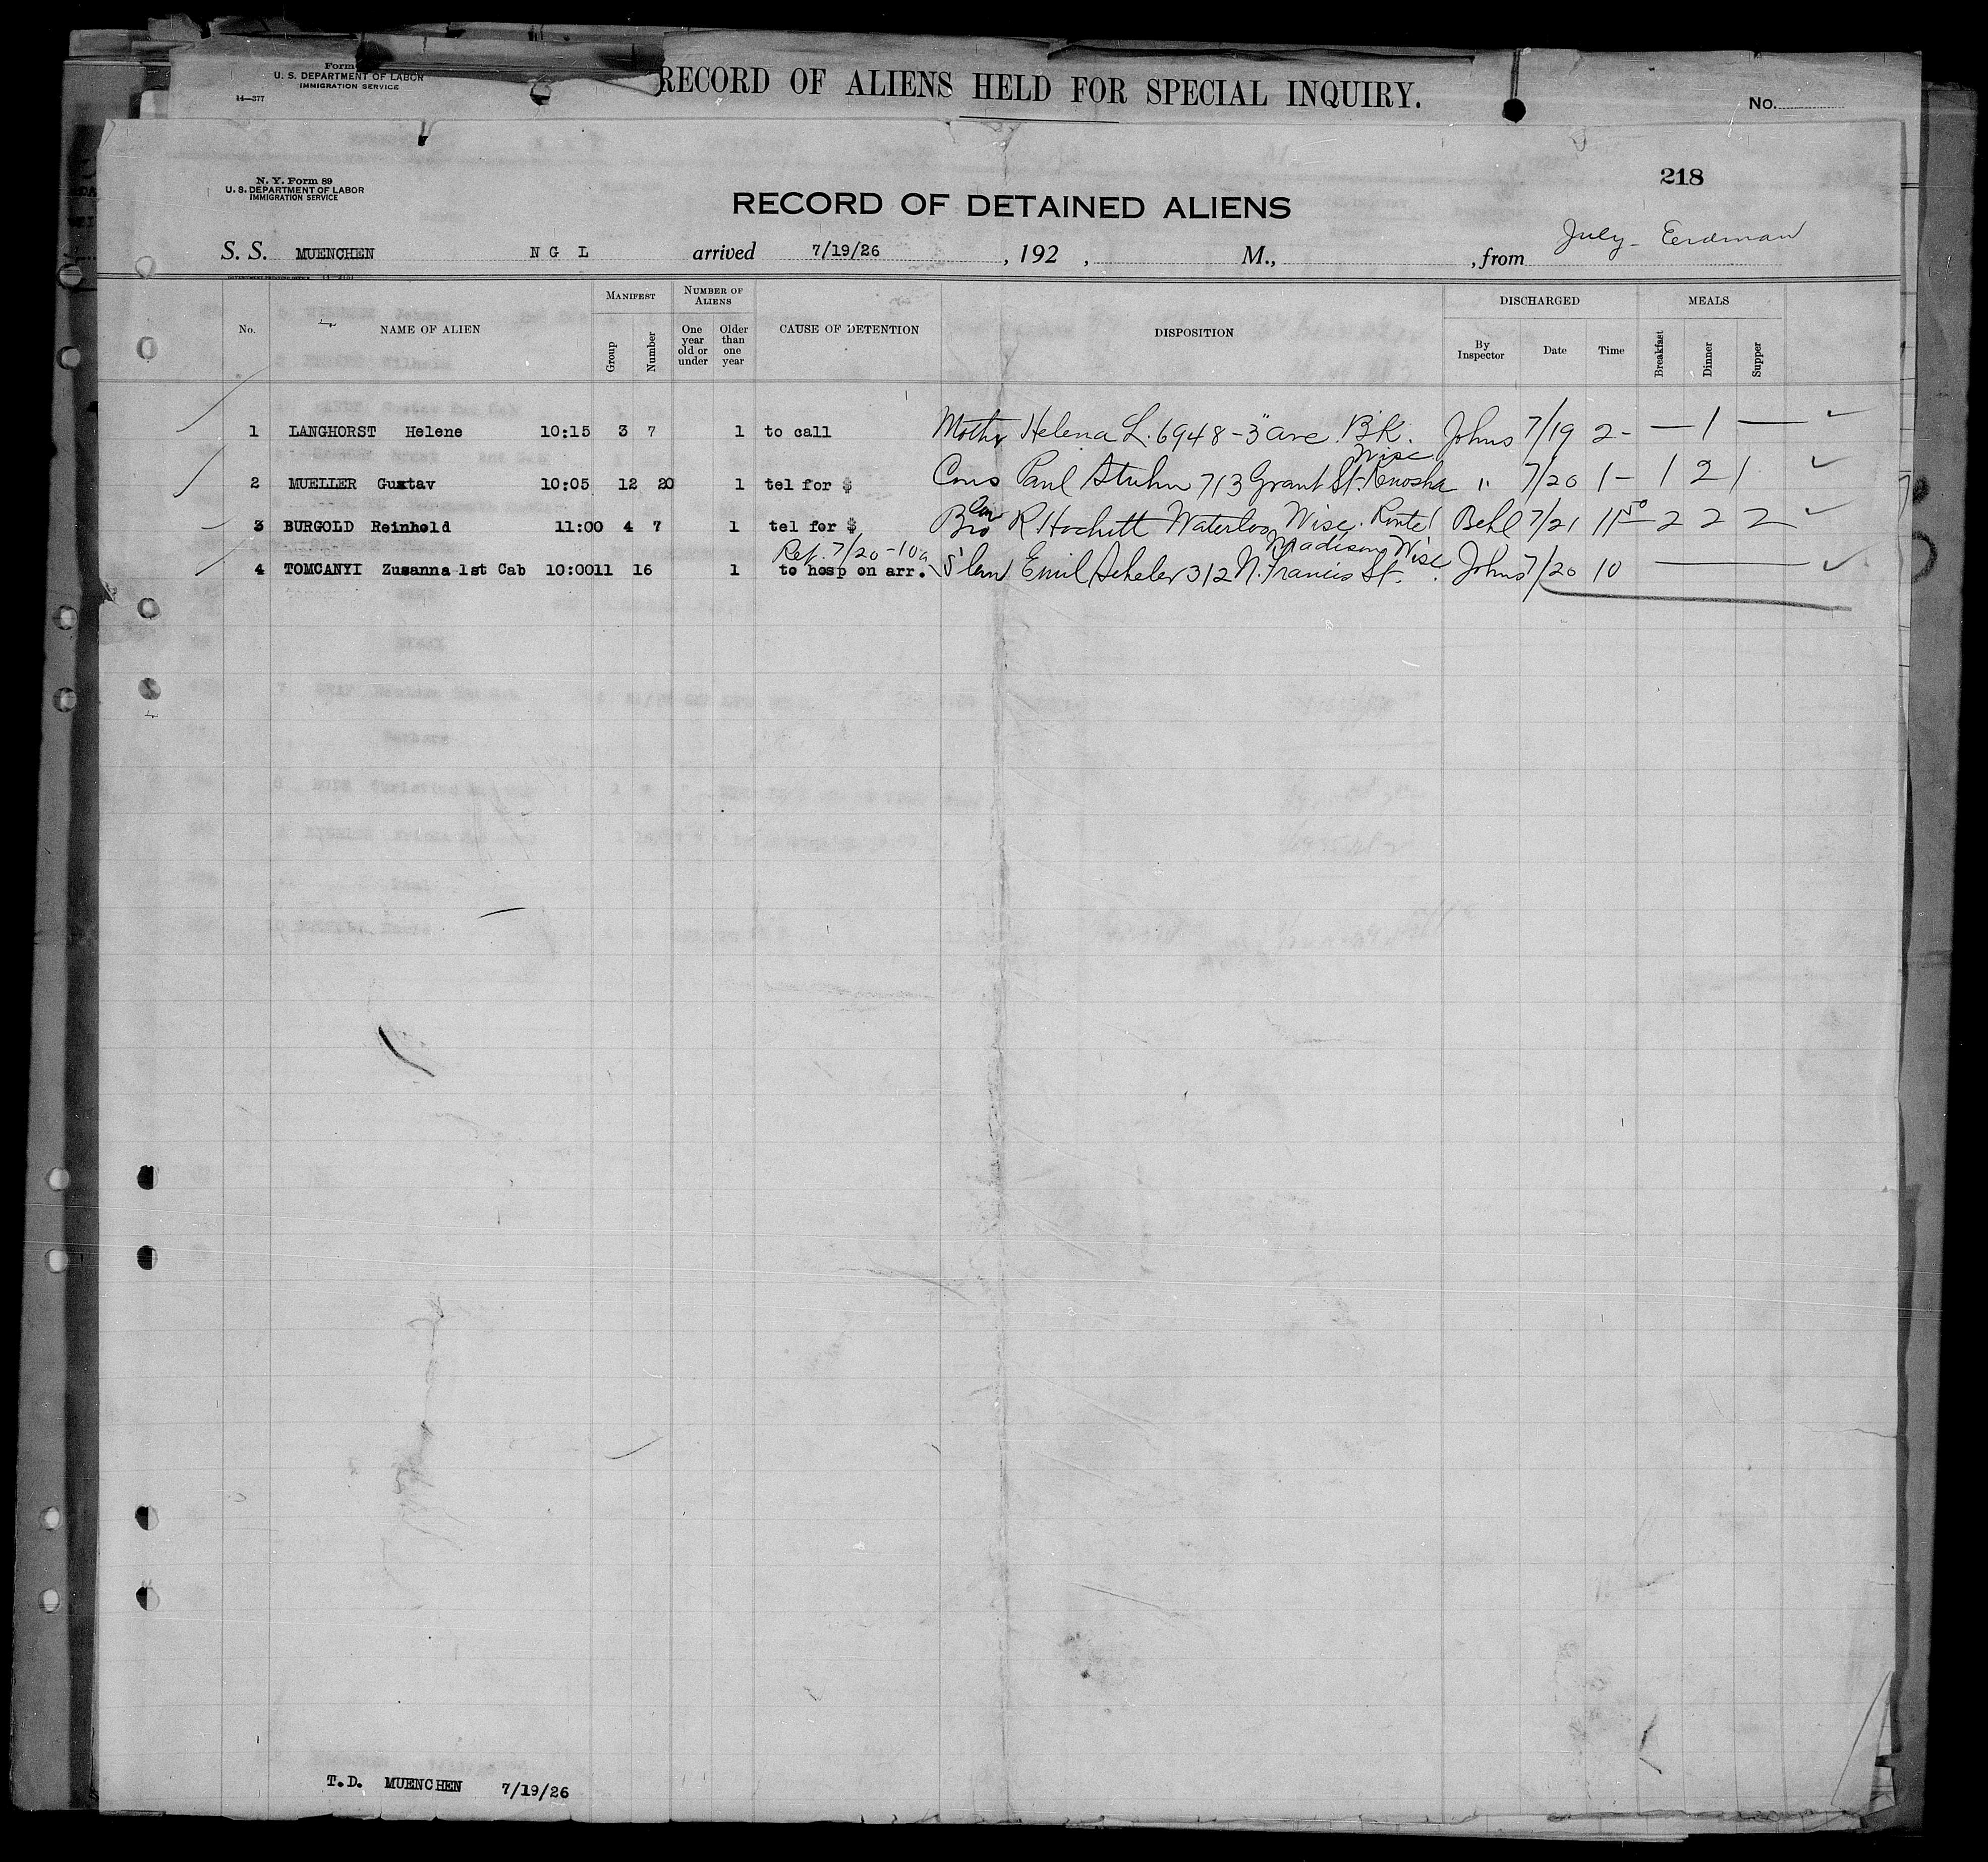 Form
U. S. DEPARTMENT OF LABOR
IMMIGRATION SERVICE
14—377
RECORD OF ALIENS HELD FOR SPECIAL INQUIRY.
No.
218
N. Y. Form 89
U. S. DEPARTMENT OF LABOR
IMMIGRATION SERVICE
RECORD OF DETAINED ALIENS
July - Erdman
S. S. MUENCHEN N G L arrived 7/19/26, 192 , M., , from
No. NAME OF ALIEN MANIFEST Group Number NUMBER OF ALIENS One year old or under Older than one year CAUSE OF DETENTION DISPOSITION DISCHARGED By Inspector Date Time MEALS Breakfast Dinner Supper
1 LANGHORST Helene 10:15 3 7 1 to call Mother Helena L. 6948 - 3" ave. B'K. Johns 7/19 2 - — 1 —
Wisc.
2 MUELLER Gustav 10:05 12 20 1 tel for $ Cous Paul Stuhn 713 Grant St. Kenosha " 7/20 1 - 1 2 1
3 BURGOLD Reinhold 11:00 4 7 1 tel for $ Bro R Hachett Waterloo, Wisc. Route 1 Behl 7/21 11 50 2 2 2
Ref. 7/20 - 10a Madison Wisc
4 TOMCANYI Zusanna 1st Cab 10:00 11 16 1 to hosp on arr. Emil Scheler 312 N. Francis St. Johns 7/20 10 —
T.D. MUENCHEN 7/19/26